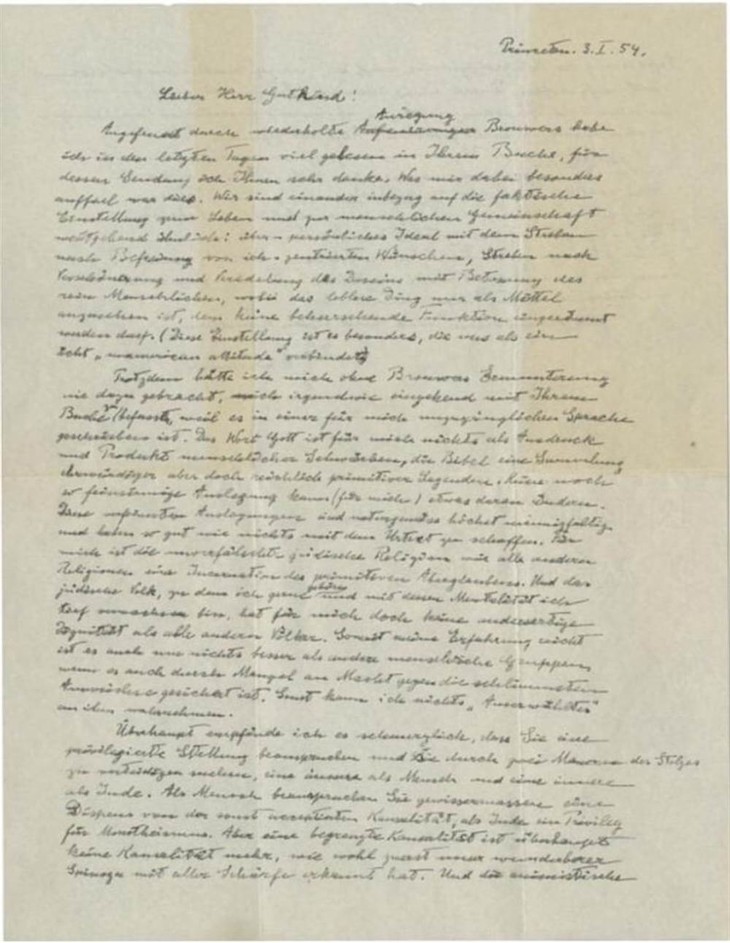 Princeton. 3. I. 54.
Lieber Herr Gutkind!
Anregung
Angefeuert durch wiederholte Brouwers habe
ich in den letzten Tagen viel gelesen in Ihrem Buche, für
dessen Sendung ich Ihnen sehr danke. Was mir dabei besonders
auffiel war dies. Wir sind einander inbezug auf die faktische
Einstellung zum Leben und zur menschlichen Gemeinschaft
weitgehend ähnlich: persönliches Ideal mit dem Streben
nach Befreiung von ich-zentrierten Wünschen, Streben nach
Verschönerung und Veredelung des Daseins mit Betonung des
rein Menschlichen, wobei das leblose Ding nur als Mittel
anzusehen ist, dem keine beherrschende Funktion eingeräumt
werden darf. (Diese Einstellung ist es besonders, die uns als ein
echt „unamerican attitude" verbindet)
Trotzdem hätte ich mich ohne Brouwers Ermunterung
nie dazu gebracht, mich irgendwie eingehend mit Ihrem
Buche zu befassen, weil es in einer für mich unzugänglichen Sprache
geschrieben ist. Das Wort Gott ist für mich nichts als Ausdruck
und Produkt menschlicher Schwächen, die Bibel eine Sammlung
ehrwürdiger aber doch reichlich primitiver Legenden. Keine noch
so feinsinnige Auslegung kann (für mich) etwas daran ändern.
Diese verfeinerten Auslegungen sind naturgemäss höchst mannigfaltig
und haben so gut wie nichts mit dem Urtext zu schaffen. Für
mich ist die unverfälschte jüdische Religion wie alle anderen
Religionen eine Incarnation des primitiven Aberglaubens. Und das
jüdische Volk, zu dem ich gerne gehöre und mit dessen Mentalität ich
tief verwachsen bin, hat für mich doch keine andersartige
Dignität als alle anderen Völker. Soweit meine Erfahrung reicht
ist es auch um nichts besser als andere menschliche Gruppen,
wenn es auch durch Mangel an Macht gegen die schlimmsten
Auswüchse gesichert ist. Sonst kann ich nichts „Auserwähltes"
an ihm wahrnehmen.
Überhaupt empfinde ich es schmerzlich, dass Sie eine
privilegierte Stellung beanspruchen und Sie durch zwei Mauern des Stolzes
zu verteidigen suchen, eine äussere als Mensch und eine innere
als Jude. Als Mensch beanspruchen Sie gewissermassen einen
Dispens von der sonst acceptierten Kausalität, als Jude ein Privileg
für Monotheismus. Aber eine begrenzte Kausalität ist überhaupt
keine Kausalität mehr, wie wohl zuerst unser wunderbarer
Spinoza mit aller Schärfe erkannt hat. Und die animistische